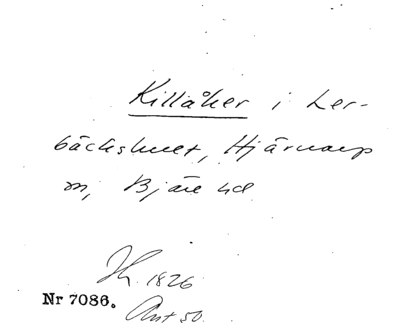 Killåker i Ler-
bäckshult, Hjärnarp
sn, Bjäre hd
Jh. 1826
Nr 7086.
Ant 50.